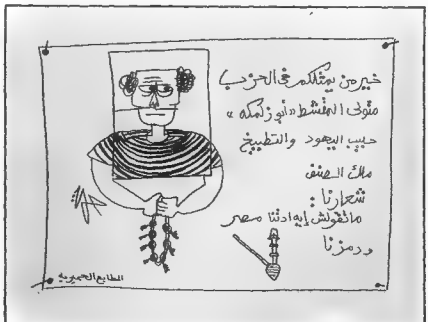 خير من يمثلكم في الحزب
متولى المقشط «أبو زلمكه»
حبيب اليهود والتطبيخ
ملك الصنف
شعارنا:
ماتقولش إيه ادتنا مصر
ورمزنا